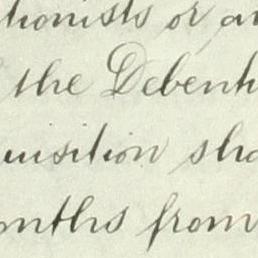 tionists or a
the Debent
uisition sha
onths from